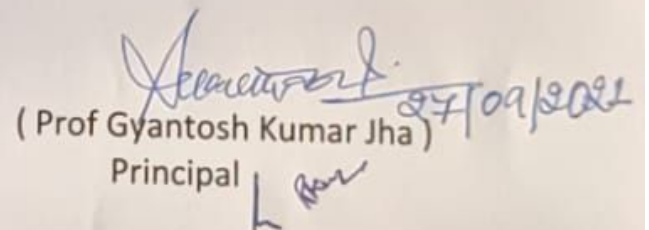 27/09/2021
( Prof Gyantosh Kumar Jha )
Principal